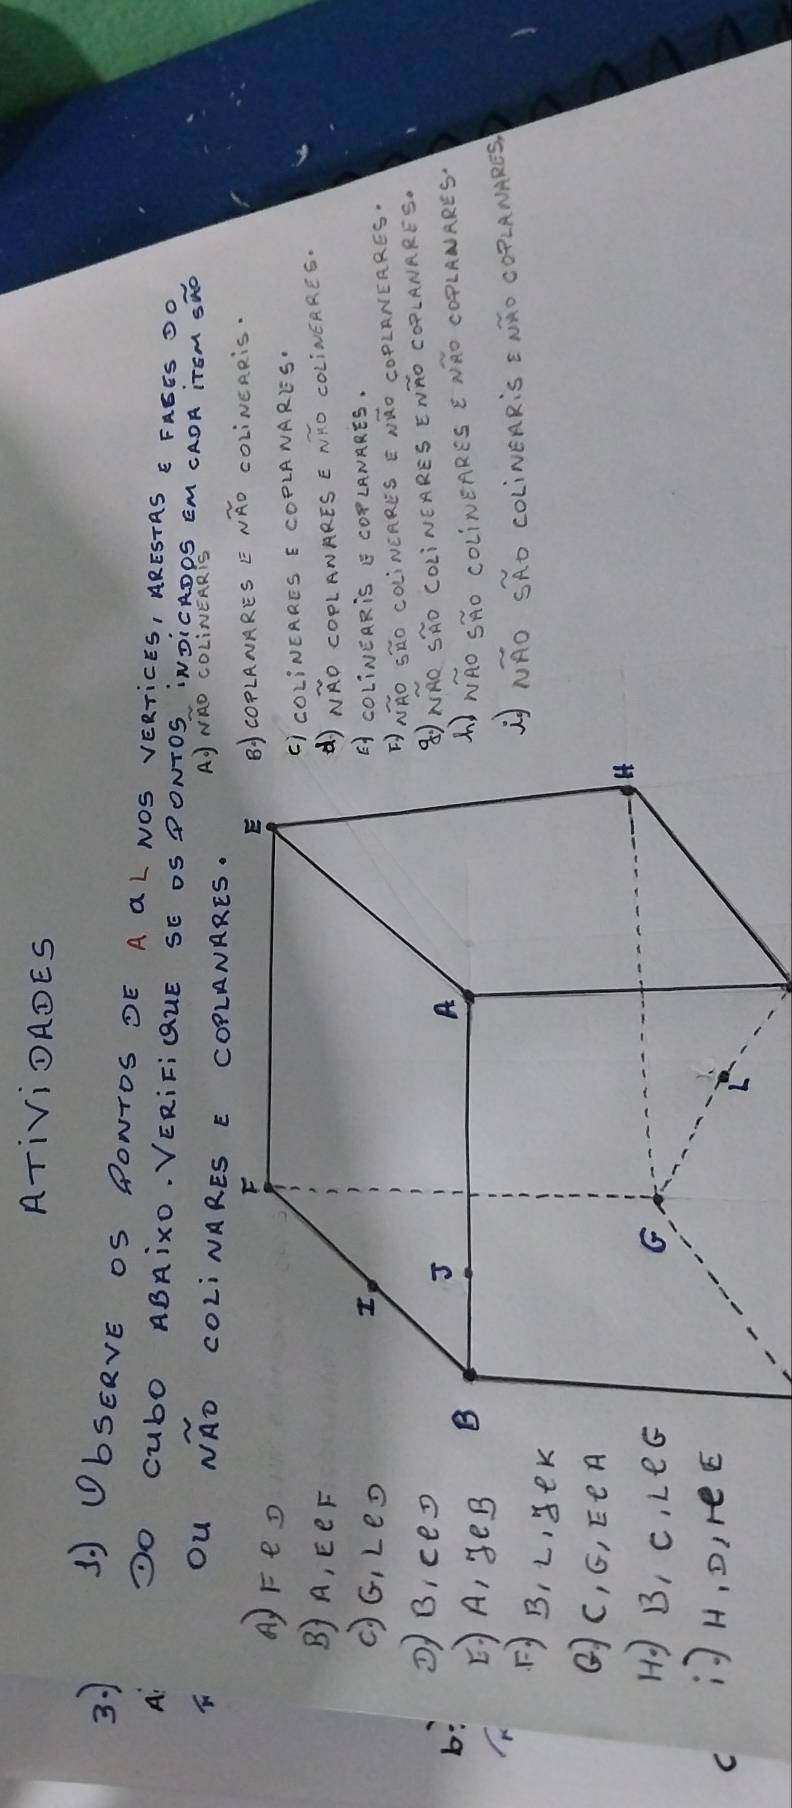 ATIVIDADES
1.) Observe os pontos de A a L nos vertices, arestas e fases do
Do cubo abaixo. Verifique se os pontos indicados em cada item são
ou não colinares e coplanares.
A.) Não colinearis
B.) Coplanares e não colinearis.
C.) Colineares e coplanares.
d.) Não coplanares e não colineares.
E.) Colinearis e coplanares.
F.) Não são colineares e não coplaneares.
g.) Não são colineares e não coplanares.
h.) Não são colineares e não coplanares.
i.) Não são colinearis e não coplanares.
A.) F e D
B.) A, E e F
C.) G, L e D
D.) B, C e D
E.) A, J e B
F.) B, L, J e K
G.) C, G, E e A
H.) B, C, L e G
i.) H, D, I e E
E
F
A
J
I
B
H
G
L
3.)
A:
b:
c